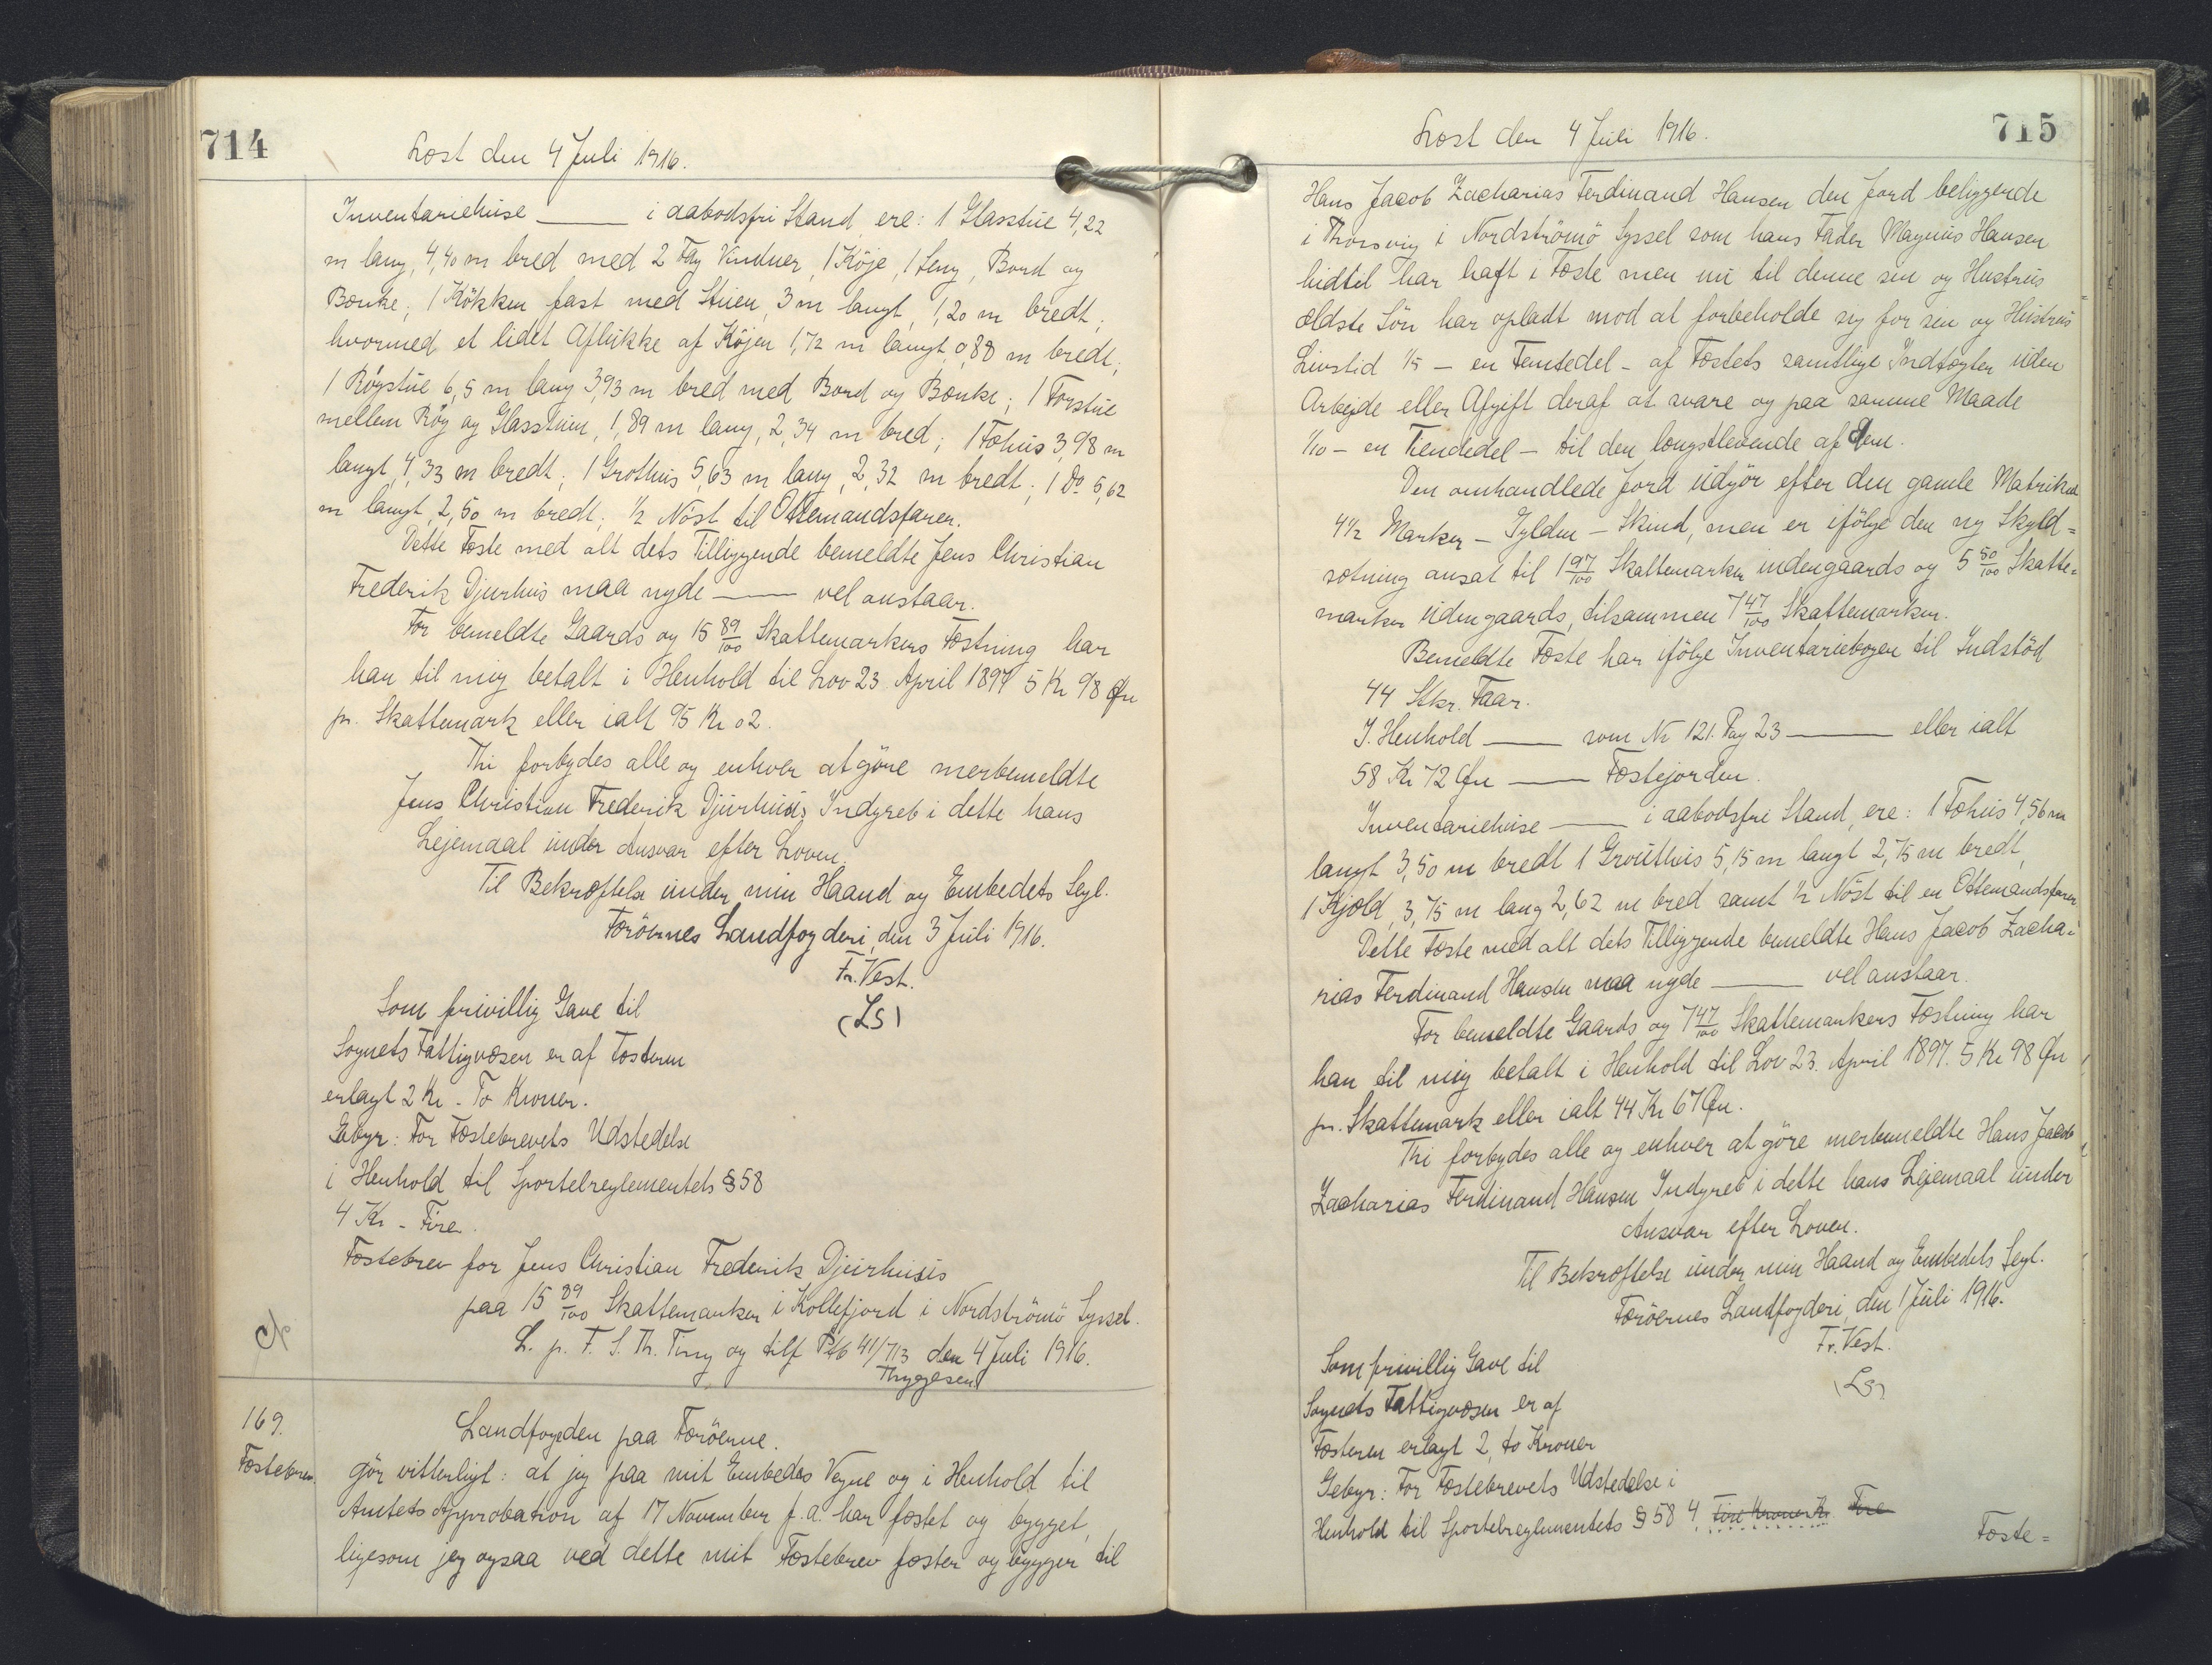 714
Læst den 4 Juli 1916.
Inventariehuse —— i aabodsfri Stand, ere: 1 Glasstue 4,22
m lang, 4,40 m bred med 2 Fag Vinduer, 1 Köje, 1 Seng, Bord og
Bænke; 1 Kökken fast med Stuen, 3 m langt, 1,20 m bredt;
hvormed et lidet Aflukke af Köjen 1,72 m langt, 0,88 m bredt;
1 Rögstue 6,5 m lang 3,93 m bred med Bord og Bænke; 1 Forstue
mellem Rög og Glasstuen, 1,89 m lang, 2,34 m bred; 1 Fæhus 3,98 m
langt, 4,33 m bredt; 1 Grothus 5,63 m lang, 2,32 m bredt; 1 Do 5,62
m langt, 2,50 m bredt; ½ Nöst til Ottemandsfarer.
Dette Fæste med alt dets Tilliggende bemeldte Jens Christian
Frederik Djurhus maa nyde —— vel anstaar.
For bemeldte Gaards og 15 89/100 Skattemarkers Fæstning har
han til mig betalt i Henhold til Lov 23 April 1897 5 Kr 98 Øre
pr. Skattemark eller ialt 95 Kr 02.
Thi forbydes alle og enhver at göre merbemeldte
Jens Christian Frederik Djurhuus Indgreb i dette hans
Lejemaal under Ansvar efter Loven.
Til Bekræftelse under min Haand og Embedets Segl.
Færöernes Landfogderi, den 3 Juli 1916.
Fr. Vest.
(LS)
Som frivillig Gave til
Sognets Fattigvæsen er af Fæsteren
erlagt 2 Kr. - To Kroner.
Gebyr: For Fæstebrevets Udstedelse
i Henhold til Sportelreglementets § 58
4 Kr - Fire.
Fæstebrev for Jens Christian Frederik Djurhuus
paa 15 89/100 Skattemarker i Kollefjord i Nordströmö Syssel.
L. p. F. S. Th. Ting og tilf Ptb 41/713 den 4 Juli 1916.
Thygesen
169.
Fæstebrev.
Landfogden paa Færöerne.
gör vitterligt: at jeg paa mit Embedes Vegne og i Henhold til
Amtets Approbation af 17 November f. a. har fæstet og bygget,
ligesom jeg ogsaa ved dette mit Fæstebrev fæster og bygger til
715
Læst den 4 Juli 1916.
Hans Jacob Zacharias Ferdinand Hansen den Jord beliggende
i Thorsvig i Nordströmö Syssel som hans Fader Magnus Hansen
hidtil har haft i Fæste men nu til denne sin og Hustrus
ældste Sön har opladt mod at forbeholde sig for sin og Hustrus
Livstid 1/5 - en Femtedel - af Fæstets samtlige Indtægter uden
Arbejde eller Afgift deraf at svare og paa samme Maade
1/10 - en Tiendedel - til den længstlevende af dem.
Den omhandlede Jord udgör efter den gamle Matrikul
4½ Marker - Gylden - Skind, men er ifölge den ny Skyld=
sætning ansat til 1 97/100 Skattemarker indengaards og 5 50/100 Skatte=
marker udengaards, tilsammen 7 47/100 Skattemarker.
Bemeldte Fæste har ifölge Inventariebogen til Indstöd
44 Stkr. Faar.
I. Henhold —— som Nr 121. Pag 23 —— eller ialt
58 Kr 72 Øre —— Fæstejorden.
Inventariehuse —— i aabodsfri Stand, ere: 1 Fæhus 4,56 m
langt 3,50 m bredt 1 Grouthus 5,15 m langt 2,75 m bredt,
1 Kjæld, 3,75 m lang 2,62 m bred samt ½ Nöst til en Ottemandsfarer
Dette Fæste med alt dets Tilliggende bemeldte Hans Jacob Zacha=
rias Ferdinand Hansen maa nyde —— vel anstaar.
For bemeldte Gaards og 7 47/100 Skattemarkers Fæstning har
han til mig betalt i Henhold til Lov 23. April 1897. 5 Kr 98 Øre
pr. Skattemark eller ialt 44 Kr 67 Øre.
Thi forbydes alle og enhver at göre merbemeldte Hans Jacob
Zacharias Ferdinand Hansen Indgreb i dette hans Lejemaal under
Ansvar efter Loven.
Til Bekræftelse under min Haand og Embedets Segl.
Færöernes Landfogderi, den 1 Juli 1916.
Fr. Vest.
(LS)
Som frivillig Gave til
Sognets Fattigvæsen er af
Fæsteren erlagt 2, to Kroner
Gebyr: For Fæstebrevets Udstedelse i
Henhold til Sportelreglementets § 58 4 Fire Kroner Kr. Fire
Fæste=